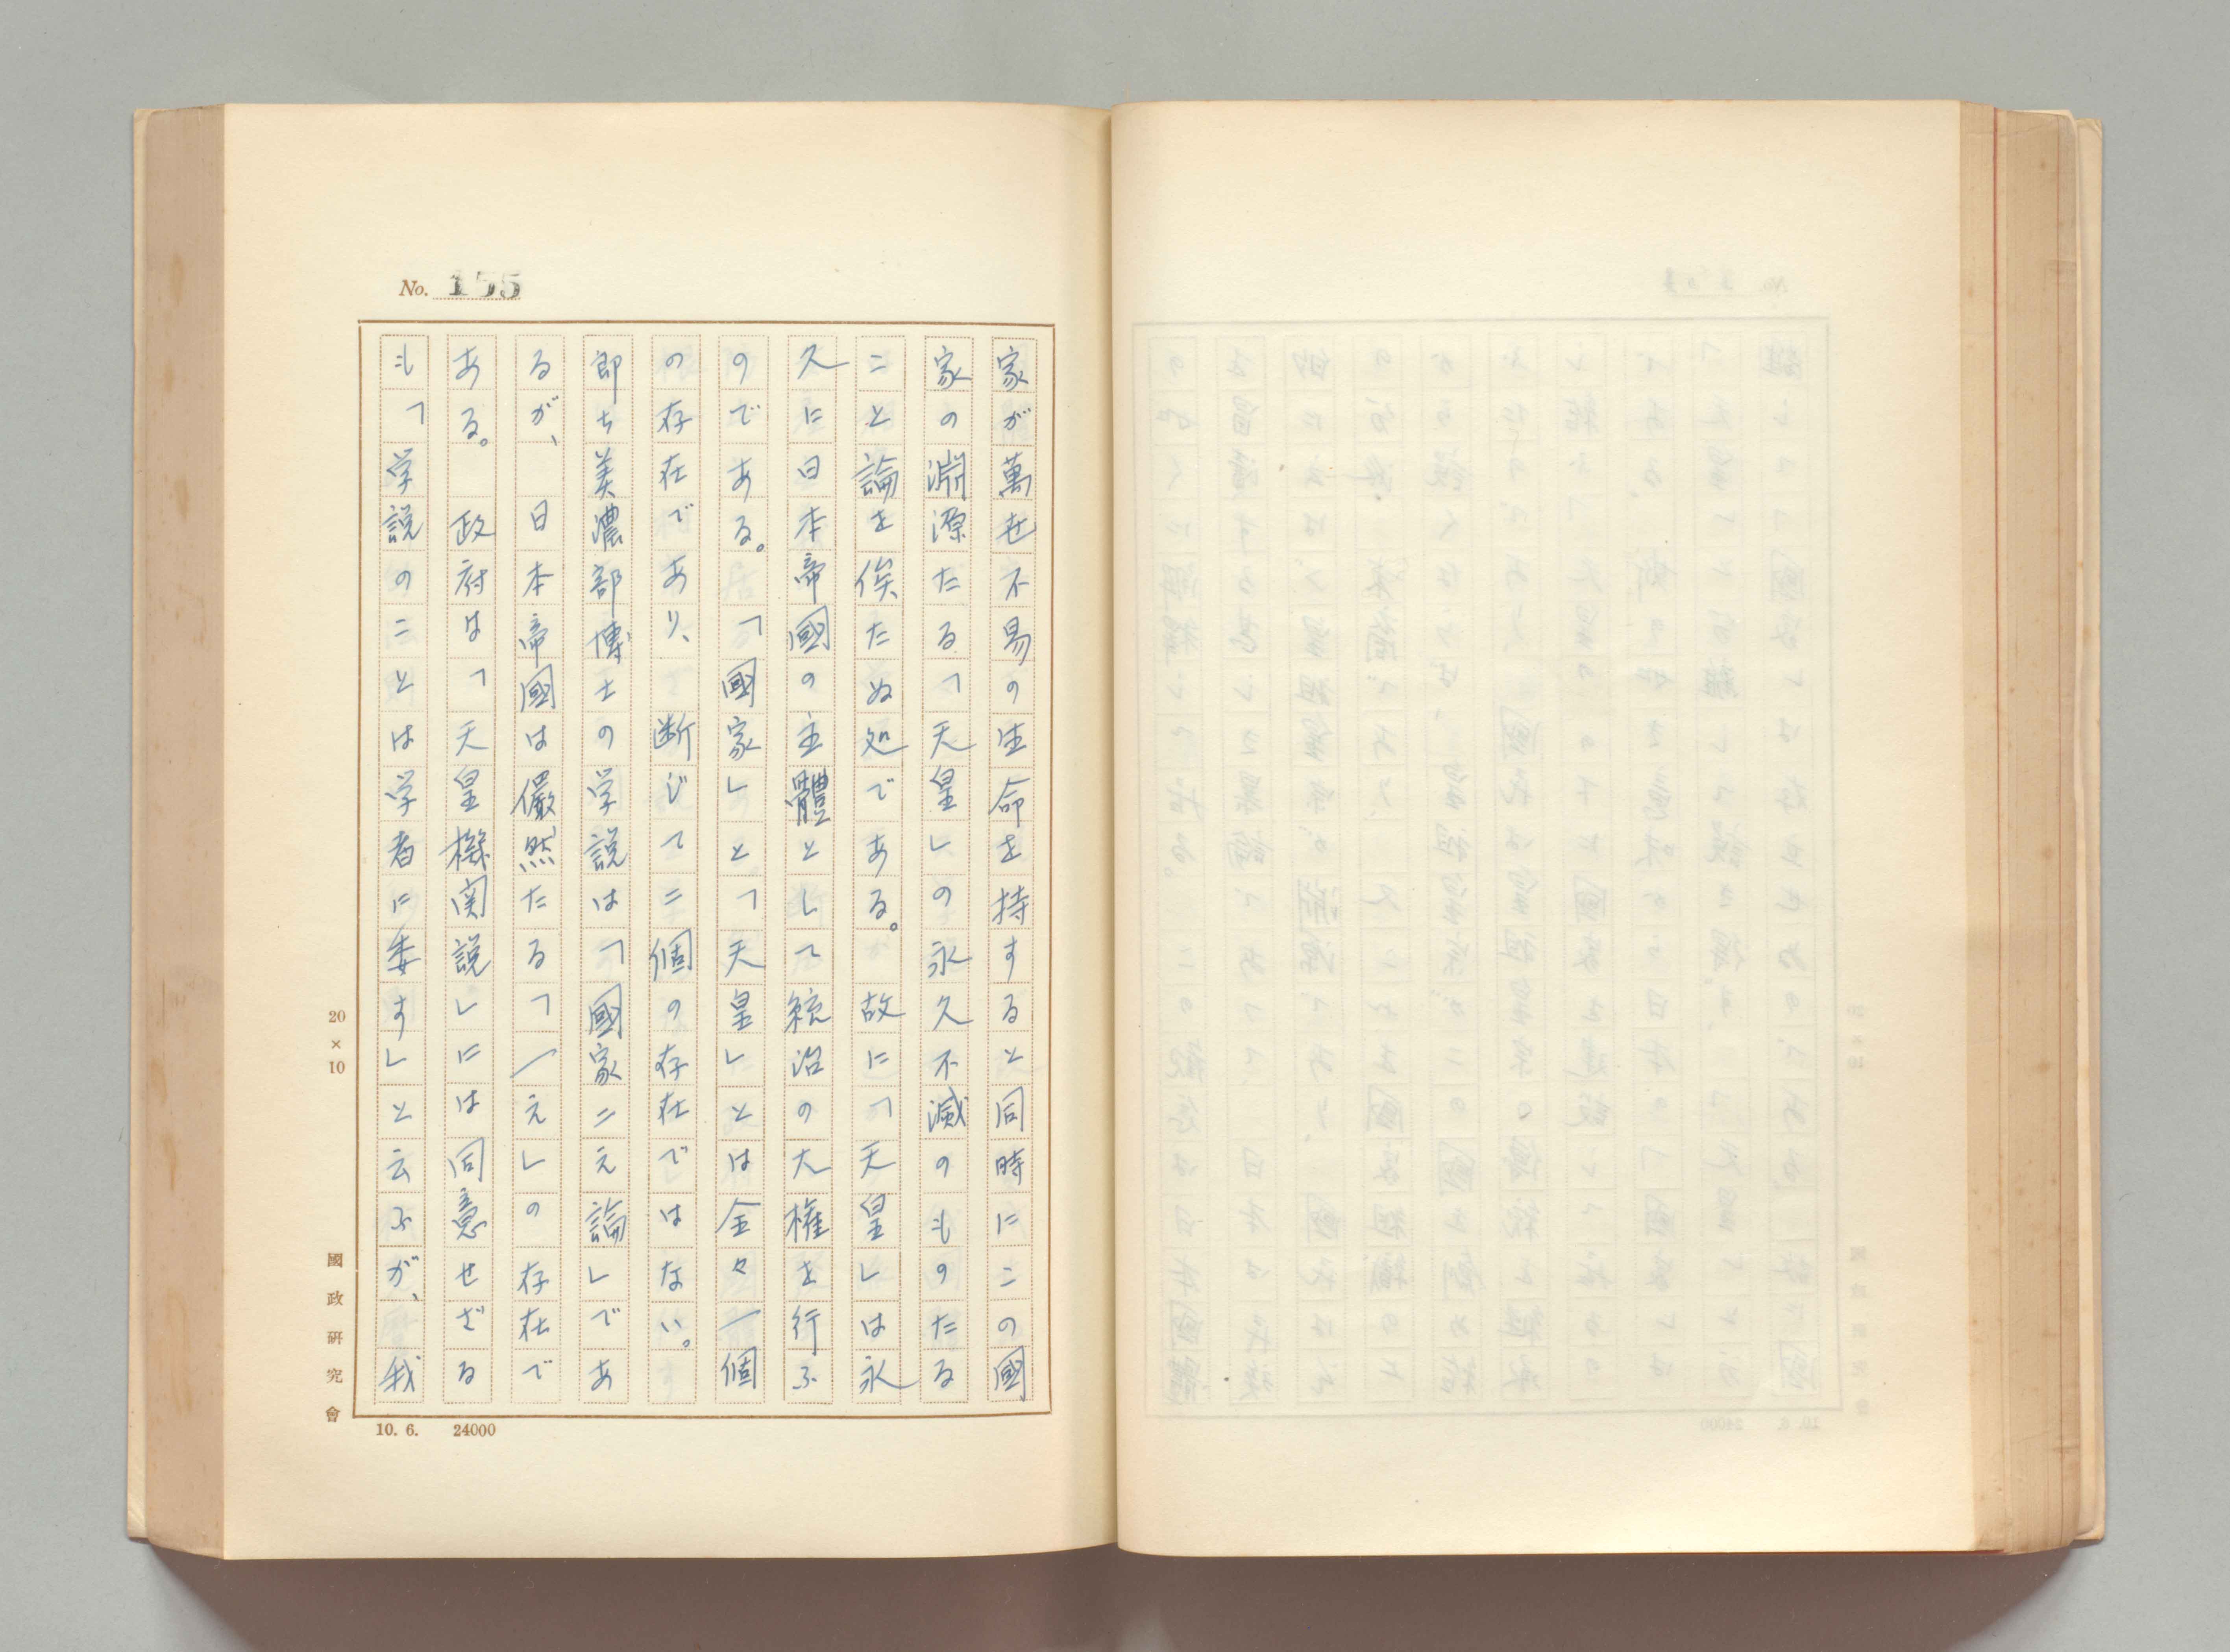 No. 155
家が萬世不易の生命を持すると同時にこの國
家の淵源たる「天皇」の永久不滅のものたる
こと論を俟たぬ処である。故に「天皇」は永
久に日本帝國の主體として統治の大権を行ふ
のである。「國家」と「天皇」とは全々一個
の存在であり、断じて二個の存在ではない。
即ち美濃部博士の学説は「國家二元論」であ
るが、日本帝國は儼然たる「一元」の存在で
ある。政府は「天皇機関説」には同意せざる
も「学説のことは学者に委す」と云ふが、我
20×10
國政研究會
10. 6. 24000